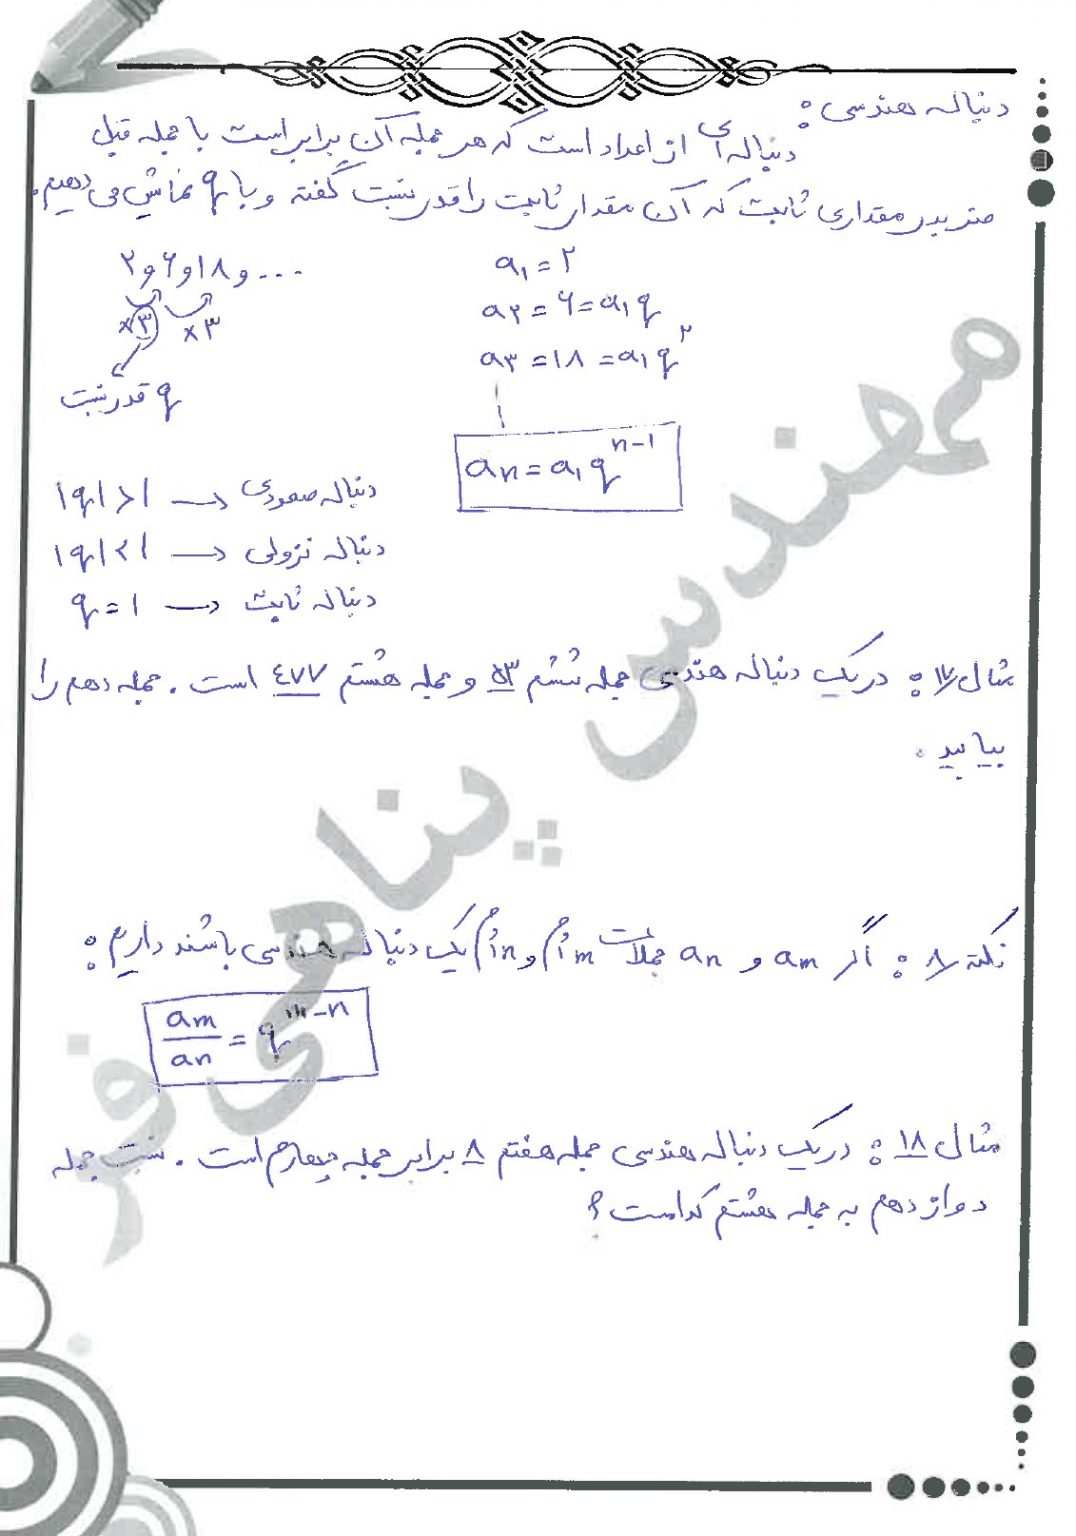 دنباله هندسی :
دنباله‌ای از اعداد است که هر جمله آن برابر است با جمله قبل
ضربدر مقداری ثابت که آن مقدار ثابت را قدر نسبت گفته و با q نمایش می‌دهیم.
۲ و ۶ و ۱۸ و ...
×۳ ×۳
q قدر نسبت
a₁ = ۲
a۲ = ۶ = a₁q
a۳ = ۱۸ = a₁q^۲
an = a₁q^n-1
دنباله صعودی → |q| > ۱
دنباله نزولی → |q| < ۱
دنباله ثابت → q = ۱
مثال ۱۷ : در یک دنباله هندسی جمله ششم ۵۳ و جمله هشتم ۴۷۷ است . جمله دهم را
بیابید .
نکته ۸ : اگر am و an جملات mاُم و nاُم یک دنباله هندسی باشند داریم :
am/an = q^m-n
مثال ۱۸ : در یک دنباله هندسی جمله هفتم ۸ برابر جمله چهارم است . نسبت جمله
دوازدهم به جمله هشتم کدامست ؟
مهندس پناهی فر